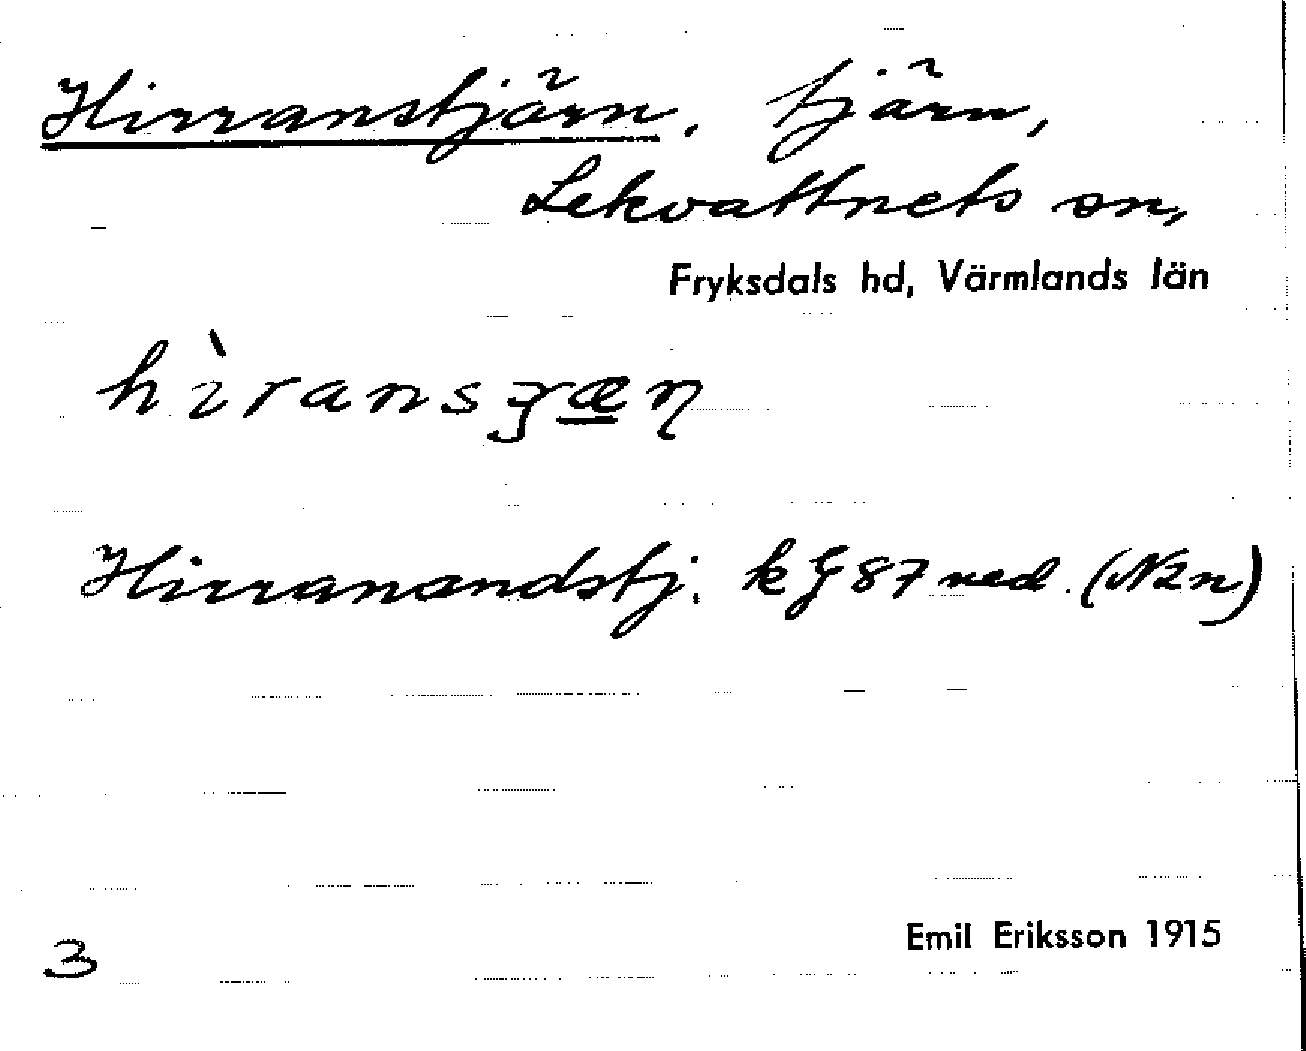 Hirranstjärn. tjärn,
Lekvattnets sn,
Fryksdals hd, Värmlands län
hìransȝæ̲ɳ
Hirranandstj. k G 87 ned. (N2n)
3
Emil Eriksson 1915